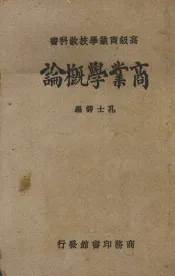 高級商業學校教科書
商業學概論
孔士諤編
商務印書館發行